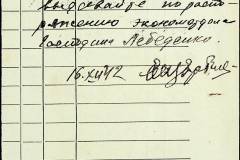 выдавайте по распо-
ряжению экономотдела
Господина Лебеденко.
16.XII 42